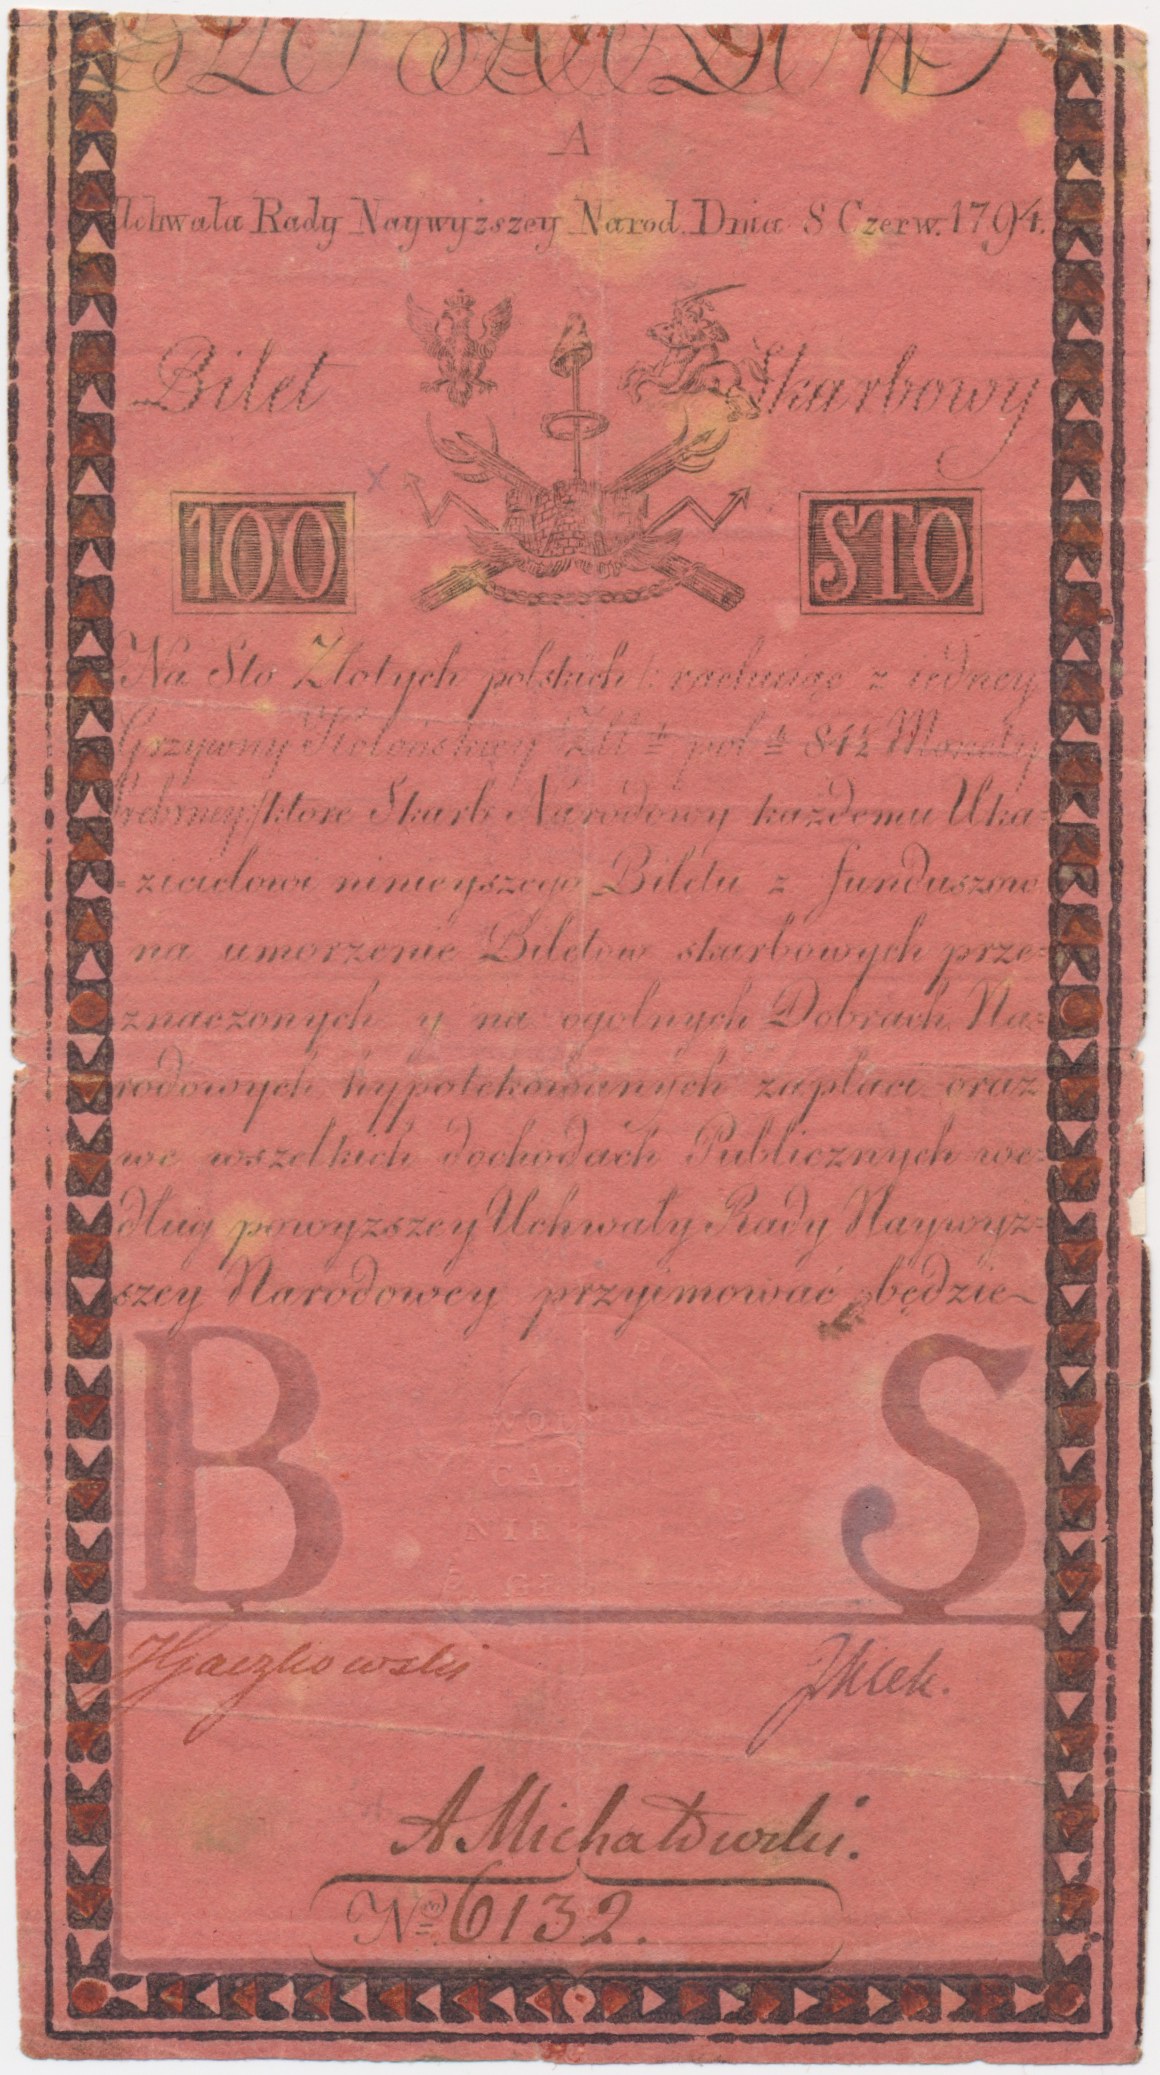 A
Uchwała Rady Naywyższey Narod. Dnia 8 Czerw. 1794.
Bilet Skarbowy
100 STO
Na Sto Złotych polskich /: rachuiąc z iedney
Grzywny Kolonskiey Złł: pol: 84½ Monety
Srebrney/ ktore Skarb Narodowy każdemu Uka=
=zicielowi ninieyszego Biletu z funduszow
na umorzenie Biletow skarbowych prze=
znaczonych y na ogolnych Dobrach Na=
rodowych hypotekowanych zapłaci oraz
we wszelkich dochodach Publicznych we=
dług powyzszey Uchwały Rady Naywyz=
szey Narodowey przyimować będzie
B S
WOLN
CAŁ
NIE
A Michałowski.
No 6132.